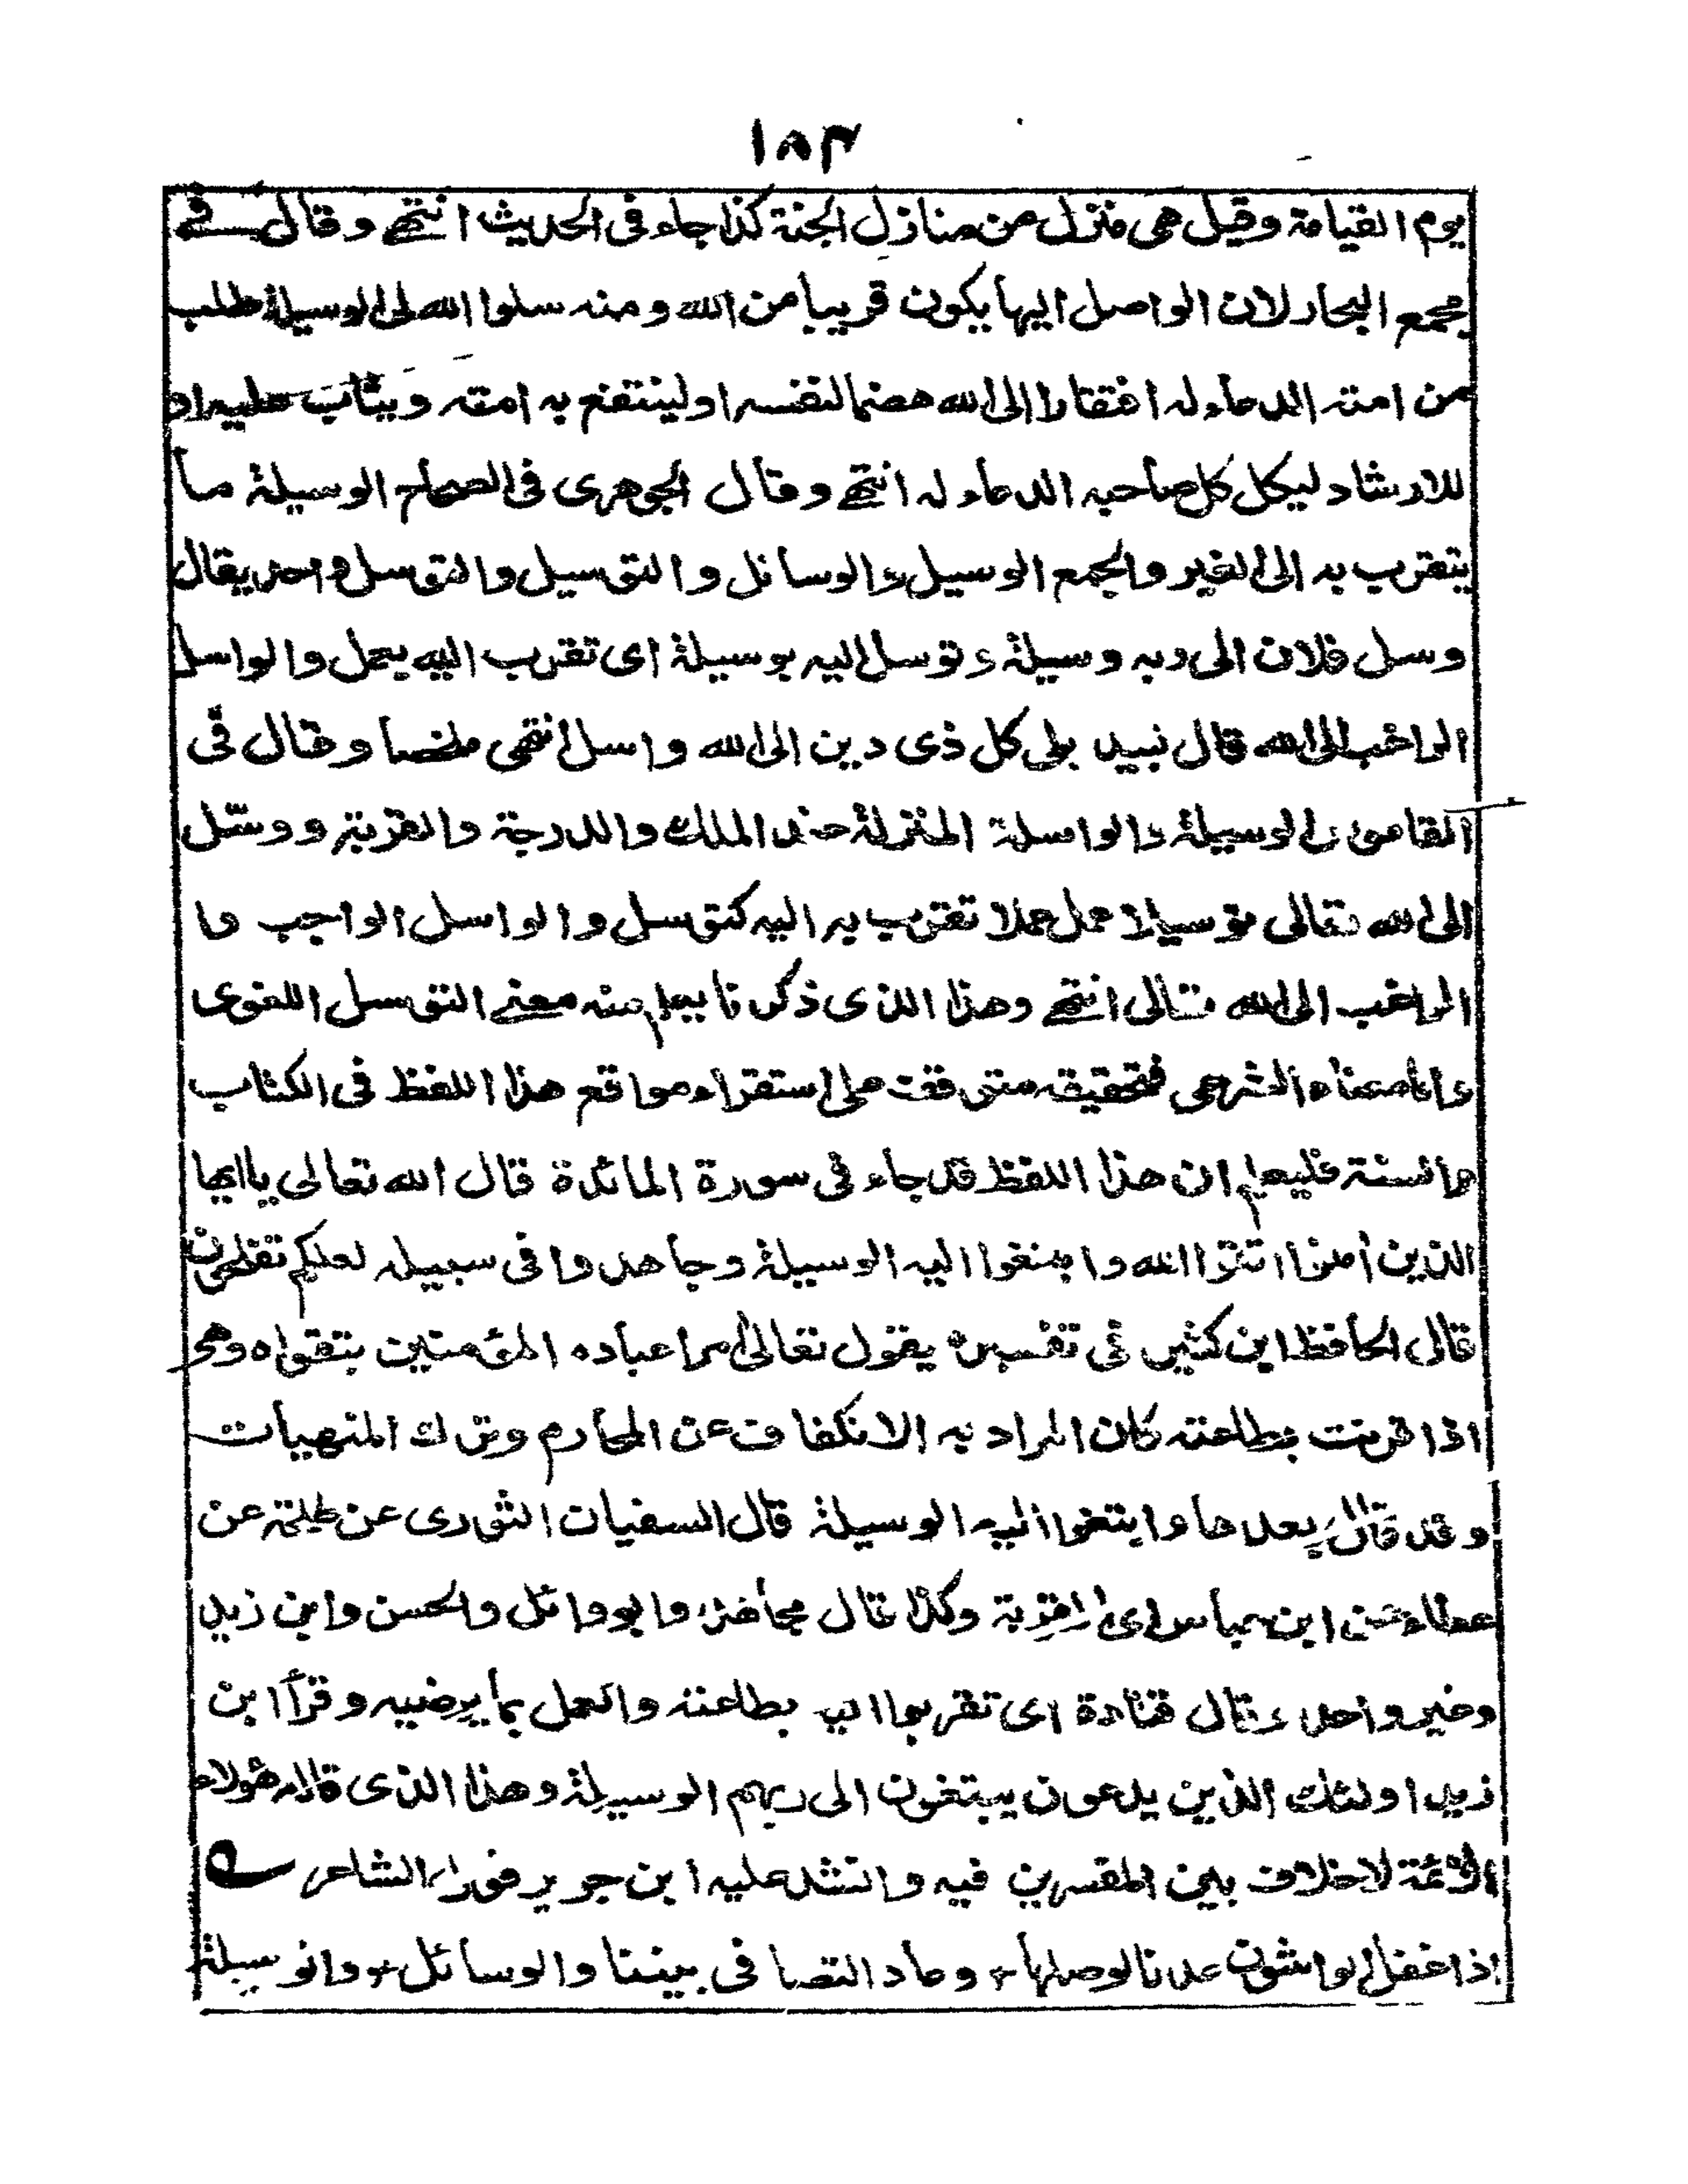 ١٨٣
يوم القيامة وقيل هى منزل من منازل الجنة كذا جاء فى الحديث انتهى وقال فى
مجمع البحار لان الواصل اليها يكون قريبا من الله ومنه سلوا الله لى الوسيلة طلب
من امته الدعاء له افتقارا الى الله هضما لنفسه او لينتفع به امته ويثاب عليه او
للارشاد ليكل كل صاحبه الدعاء له انتهى وقال الجوهرى فى الصحاح الوسيلة ما
يتقرب به الى الغير والجمع الوسيل والوسائل والتوسيل والتوسل واحد يقال
وسل فلان الى ربه وسيلة وتوسل اليه بوسيلة اى تقرب اليه بعمل والواسل
الراغب الى الله قال لبيد بلى كل ذى دين الى الله واسل انتهى ملخصا وقال فى
القاموس الوسيلة والواسلة المنزلة عند الملك والدرجة والقربة ووسّل
الى الله تعالى توسيلا عمل عملا تقرب به اليه كتوسل والواسل الواجب و
الراغب الى الله تعالى انتهى وهذا الذى ذكرنا يعلم منه معنى التوسل اللغوى
واما معناه الشرعى فتحقيقه متوقف على استقراء مواقع هذا اللفظ فى الكتاب
والسنة فليعلم ان هذا اللفظ قد جاء فى سورة المائدة قال الله تعالى يا ايها
الذين امنوا اتقوا الله وابتغوا اليه الوسيلة وجاهدوا فى سبيله لعلكم تفلحون
قال الحافظ ابن كثير فى تفسيره يقول تعالى امرا عباده المؤمنين بتقواه وهى
اذا قرنت بطاعته كان المراد به الانكفاف عن المحارم وترك المنهيات
وقد قال بعدها وابتغوا اليه الوسيلة قال السفيان الثورى عن طلحة عن
عطاء عن ابن عباس اى القربة وكذا قال مجاهد وابو وائل والحسن وابن زيد
وغير واحد وقال قتادة اى تقربوا اليه بطاعته والعمل بما يرضيه وقرأ ابن
زيد اولئك الذين يدعون يبتغون الى ربهم الوسيلة وهذا الذى قاله هولاء
الائمة لا خلاف بين المفسرين فيه وانشد عليه ابن جرير قول الشاعر
اذا غفل الواشون عدنا لوصلها ؞ وعاد التصا فى بيننا والوسائل ؞ والوسيلة